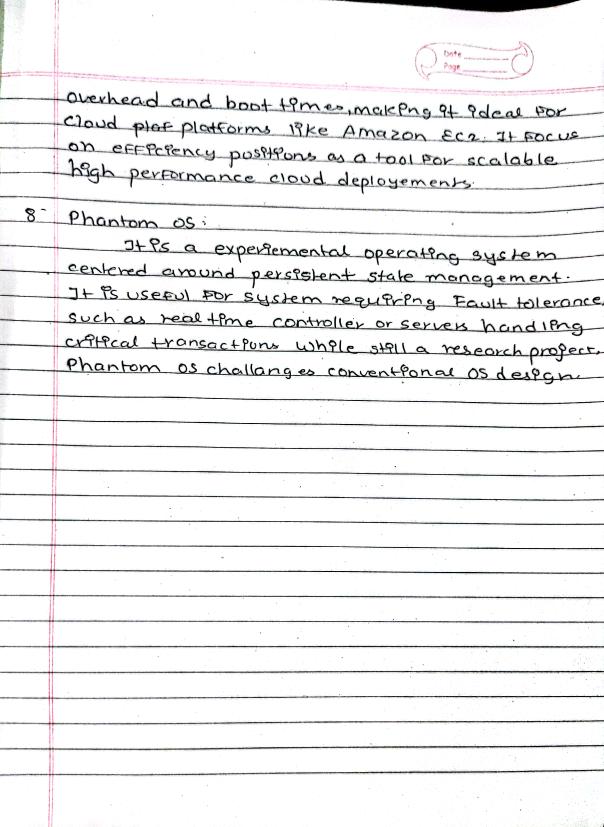 Date
Page
overhead and boot times, making it ideal for
cloud plaf platforms like Amazon EC2. It focus
on efficiency positions as a tool for scalable
high performance cloud deployements.
8- Phantom OS:
It is a experiemental operating system
centered around persistent state management.
It is useful for system requiring fault tolerance,
such as real time controller or servers handling
critical transactions while still a research project,
Phantom os challanges conventional OS design.